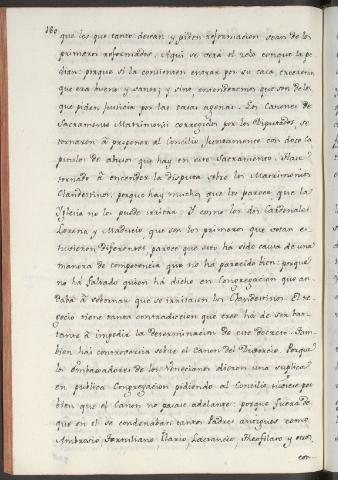 160
que los que tanto desean y piden reformacion sean de los
primeros reformados. Aqui se verá el zelo con que la pe
dian: porque si la consienten entrar por su casa, creeremos
que era buena y sana; y sino, entenderemos que son de los
que piden Justicia por las casas agenas. Los Canones de
Sacramento Matrimonii corregidos por los Diputados, se
tornaron â proponer al Concilio juntamente con doce ca
pitulos de abusos que hay en este Sacramento. Hase
tornado â encender la disputa sobre los Matrimonios
Clandestinos, porque hay muchos que les parece, que la
Yglesia no los puede irritar. Y como los dos Cardenales
Lorena y Madrucio que son los primeros que votan es-
tuvieron diferentes, parece que esto há sido causa de una
manera de competencia que no há parecido bien: porque
no há faltado quien há dicho en Congregacion que an-
daba â sobornar que se irritasen los Clandestinos. El ne-
gocio tiene tanta contradiccion que creo há de ser bas-
tante â impedir la determinacion de este decreto. Tam-
bien hai controversia sobre el Canon del Divorcio. Porque
los Embaxadores de los Venecianos dieron una suplica
en publica Congregacion pidiendo al Concilio tuviese por
bien que el Canon no pasase adelante: porque fuera de
que en el se condenaban tantos Padres antiguos como
Ambrosio, Tertuliano, Ilario, Lactancio, Theofilato y otros,
con